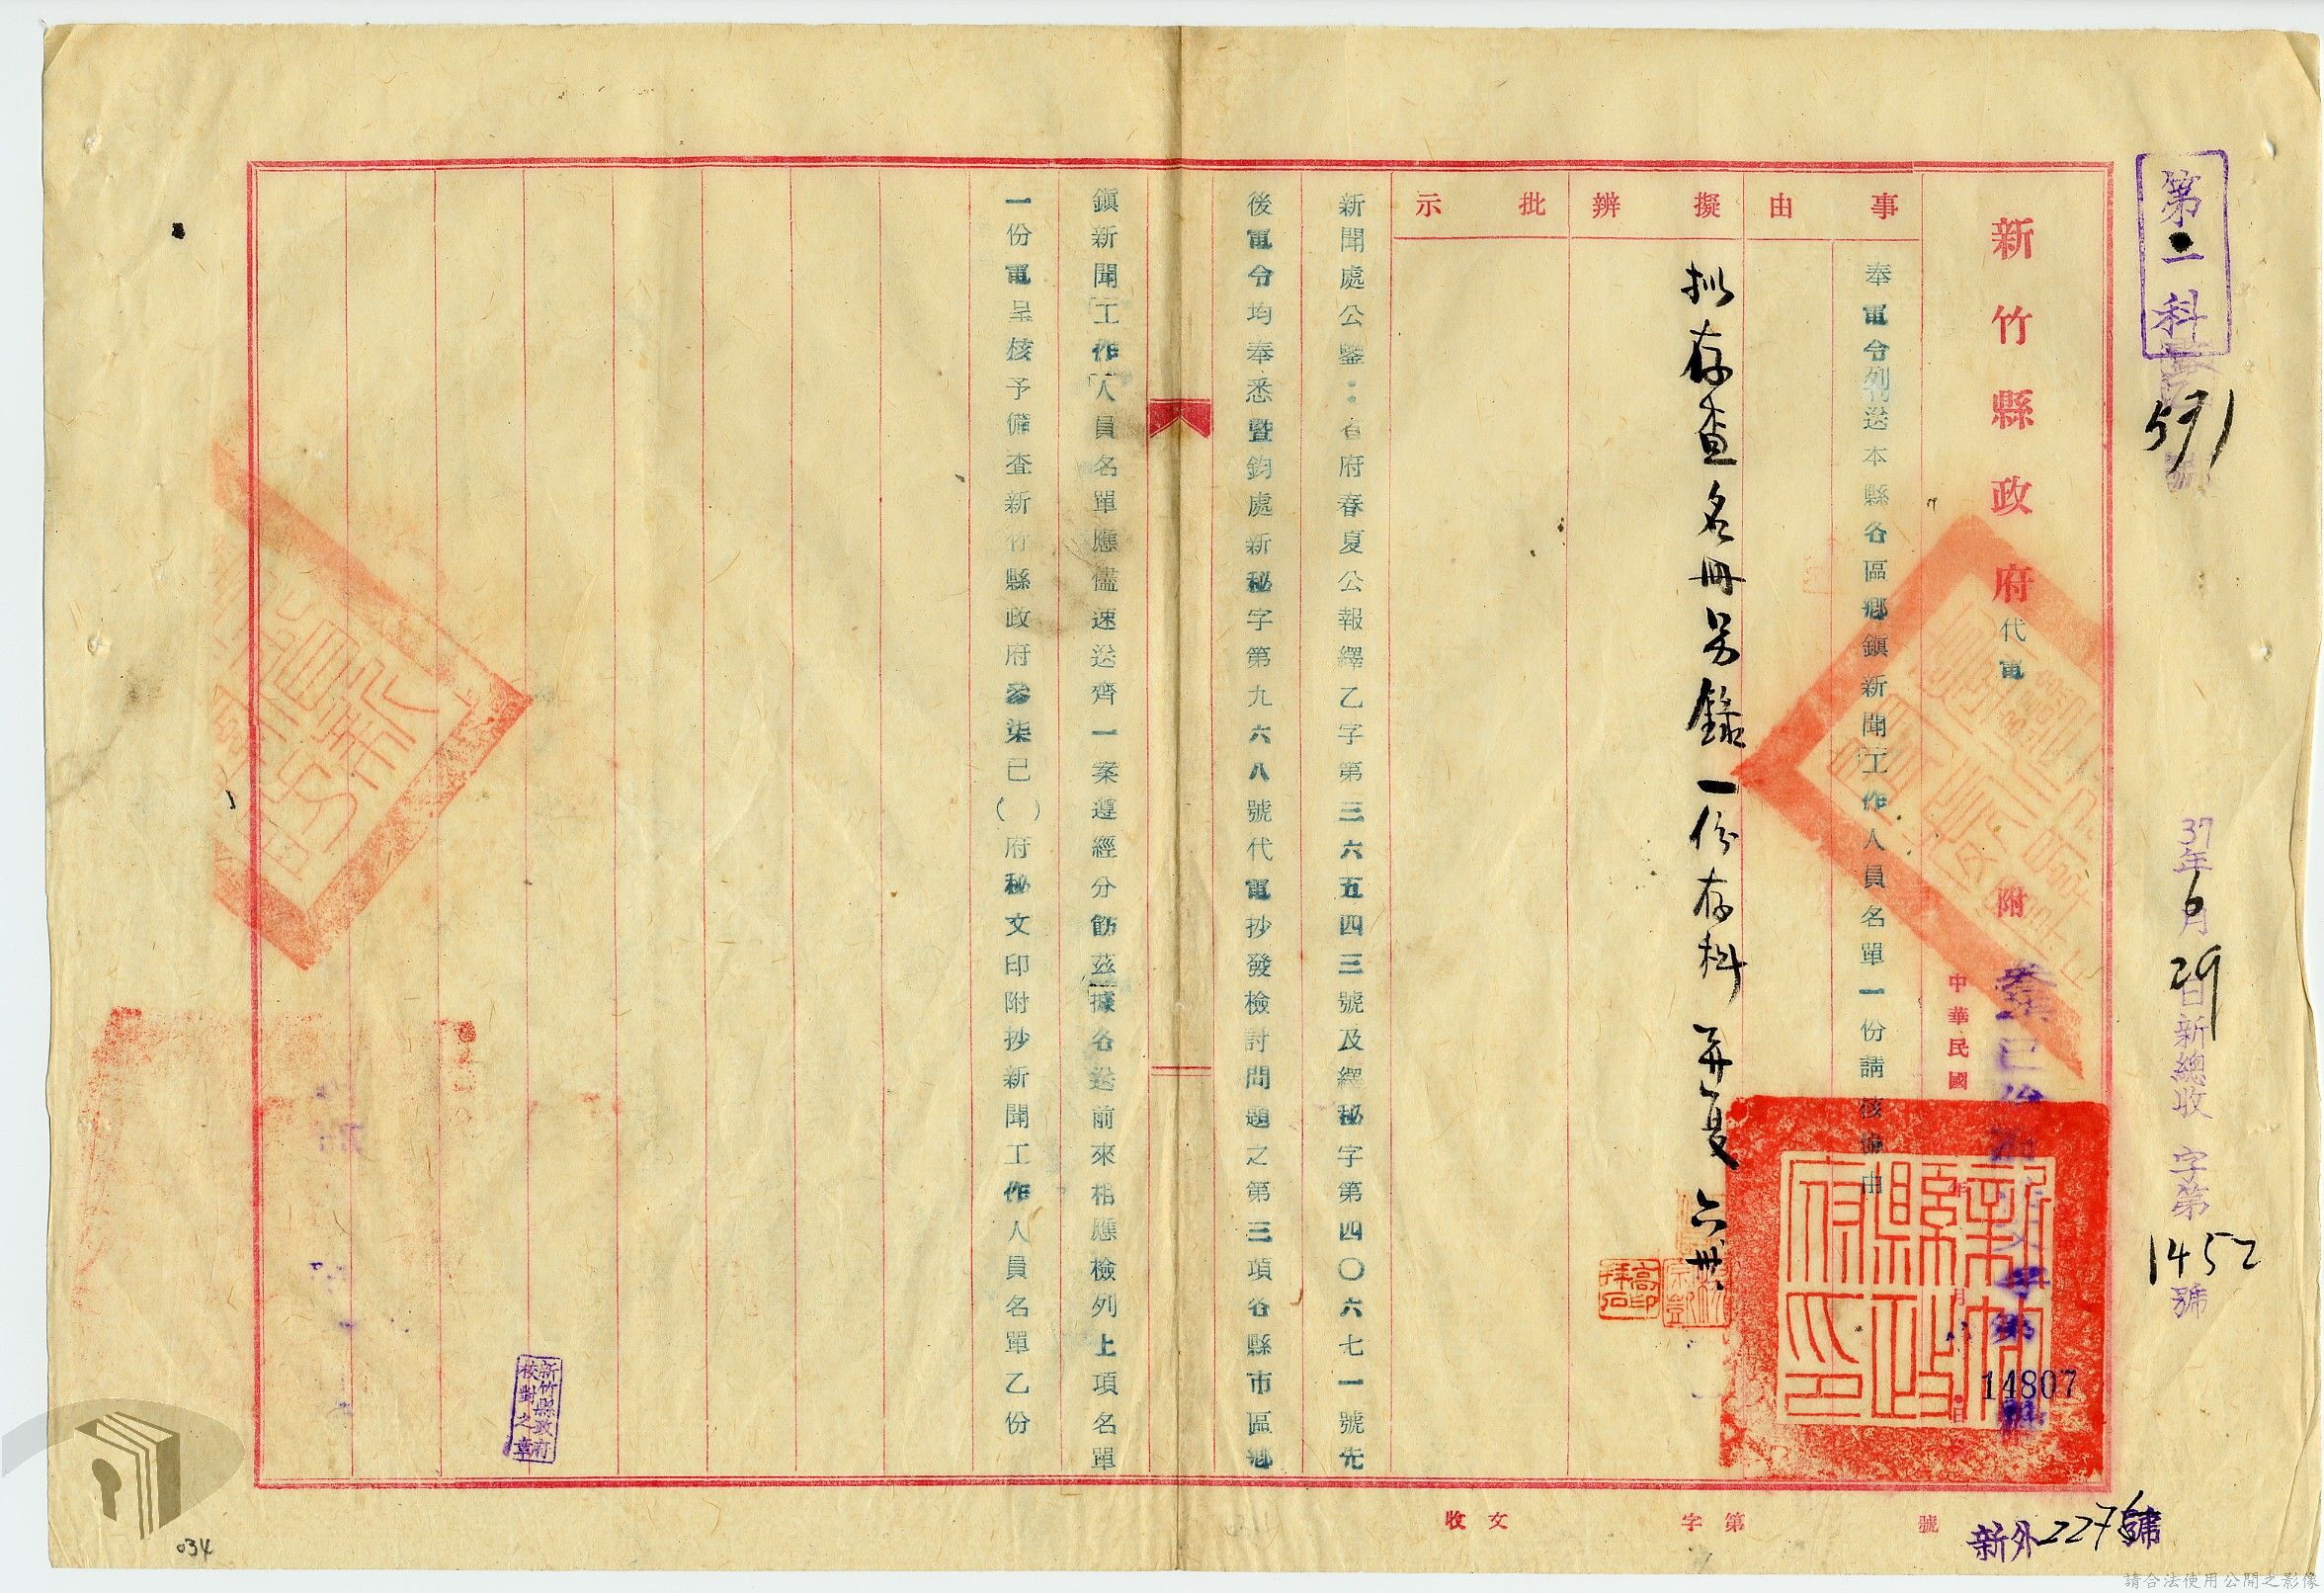 第二科
591
37年6月29日新總收 字第1452號
新竹縣政府代電
附
中華民國 年 月 日
14807
事由
擬辦
批示
奉電令列送本縣各區鄉鎮新聞工作人員名單一份請核備由
擬存查名冊另錄一份存科
六卅
新聞處公鑒：省府春夏公報繹乙字第三六五四三號及繹秘字第四〇六七一號先
後電令均奉悉暨鈞處新秘字第九六六八號代電抄發檢討問題之第三項各縣市區鄉
鎮新聞工作人員名單應儘速送齊一案遵經分飭茲據各送前來相應檢列上項名單
一份電呈核予備查新竹縣政府叁柒已( )府秘文印附抄新聞工作人員名單乙份
新竹縣政府印
高印拜石
新竹縣政府
校對之章
收文
字第
號
新外2276號
034
請合法使用公開之影像